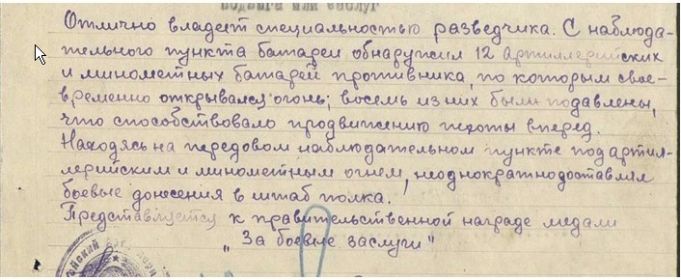 подвига или заслуг
Отлично владеет специальностью разведчика. С наблюда-
тельного пункта батареи обнаружил 12 артиллерийских
и минометных батарей противника, по которым свое-
временно открывался огонь; восемь из них были подавлены,
что способствовало продвижению пехоты вперед.
Находясь на передовом наблюдательном пункте под артил-
лерийским и минометным огнем, неоднократно доставлял
боевые донесения в штаб полка.
Представляется к правительственной награде медали
„За боевые заслуги"